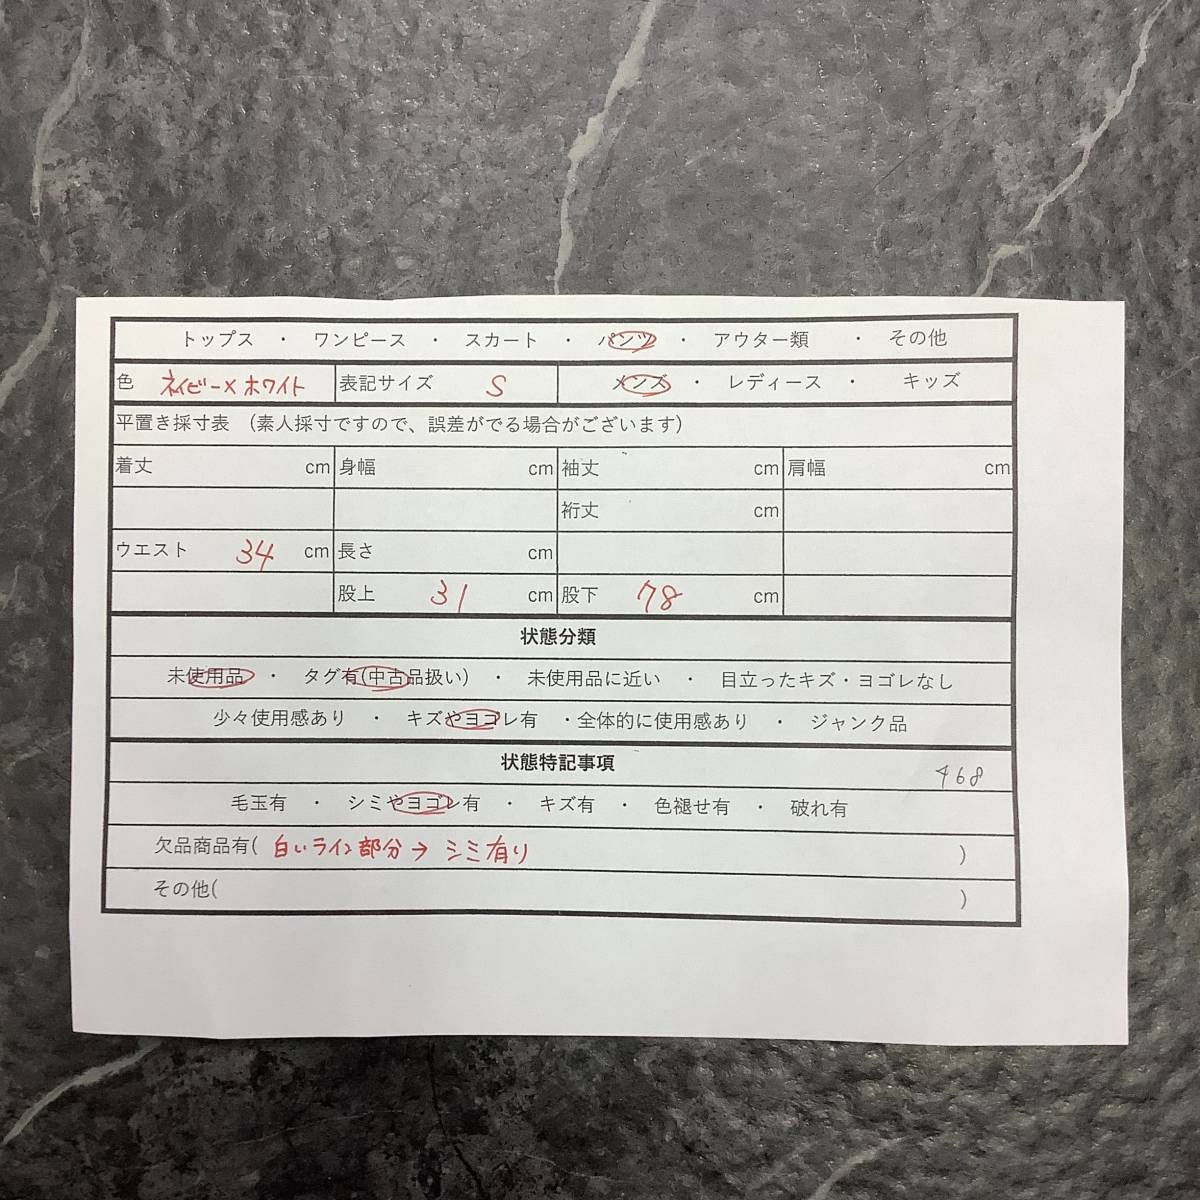 トップス ・ ワンピース ・ スカート ・ パンツ ・ アウター類 ・ その他
色 ネイビー×ホワイト 表記サイズ S メンズ ・ レディース ・ キッズ
平置き採寸表 (素人採寸ですので、誤差がでる場合がございます)
着丈 cm 身幅 cm 袖丈 cm 肩幅 cm
裄丈 cm
ウエスト 34 cm 長さ cm
股上 31 cm 股下 78 cm
状態分類
未使用品 ・ タグ有(中古品扱い) ・ 未使用品に近い ・ 目立ったキズ・ヨゴレなし
少々使用感あり ・ キズやヨゴレ有 ・全体的に使用感あり ・ ジャンク品
状態特記事項
468
毛玉有 ・ シミやヨゴレ有 ・ キズ有 ・ 色褪せ有 ・ 破れ有
欠品商品有( 白いライン部分→シミ有り )
その他( )